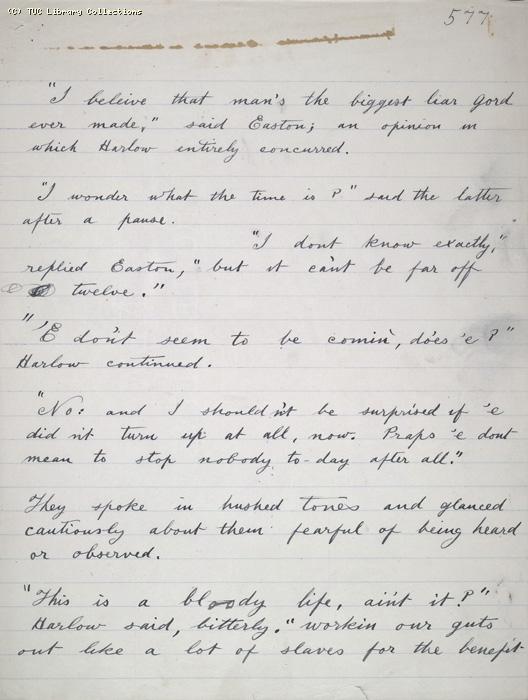 (C) TUC Library Collections
577
"I beleive that man's the biggest liar Gord
ever made," said Easton; an opinion in
which Harlow entirely concurred.
"I wonder what the time is?" said the latter
after a pause.
"I dont know exactly,"
replied Easton, "but it can't be far off
twelve."
"'E don't seem to be comin', does 'e?"
Harlow continued.
"No: and I should n't be surprised if 'e
did n't turn up at all, now. Praps 'e dont
mean to stop nobody to-day after all."
They spoke in hushed tones and glanced
cautiously about them fearful of being heard
or observed.
"This is a bloody life, ain't it?"
Harlow said, bitterly. "workin our guts
out like a lot of slaves for the benefit